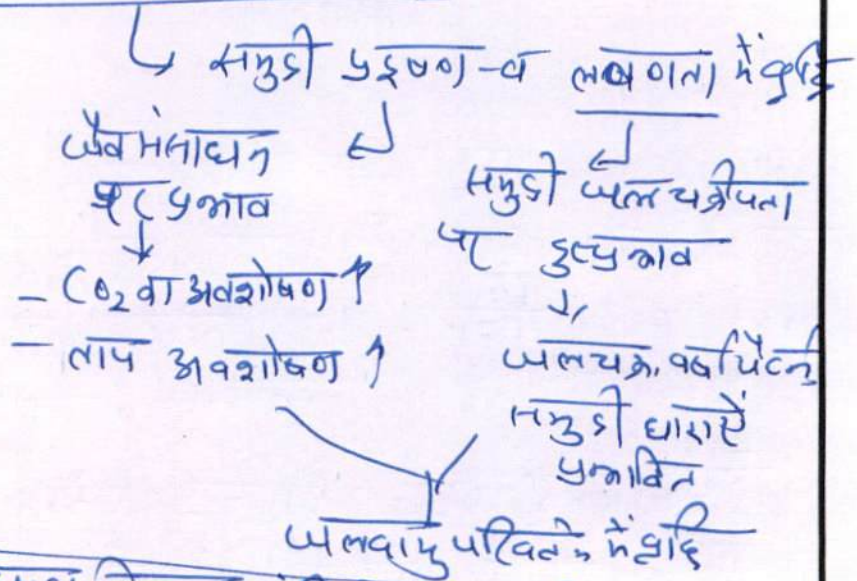 समुद्री प्रदूषण व लवणता में वृद्धि
जैव संसाधन
पर प्रभाव
- CO2 का अवशोषण ↑
- ताप अवशोषण ↑
समुद्री जल चक्रीयता
पर दुष्प्रभाव
जलचक्र, वर्षा पैटर्न
समुद्री धाराएँ
प्रभावित
जलवायु परिवर्तन में वृद्धि